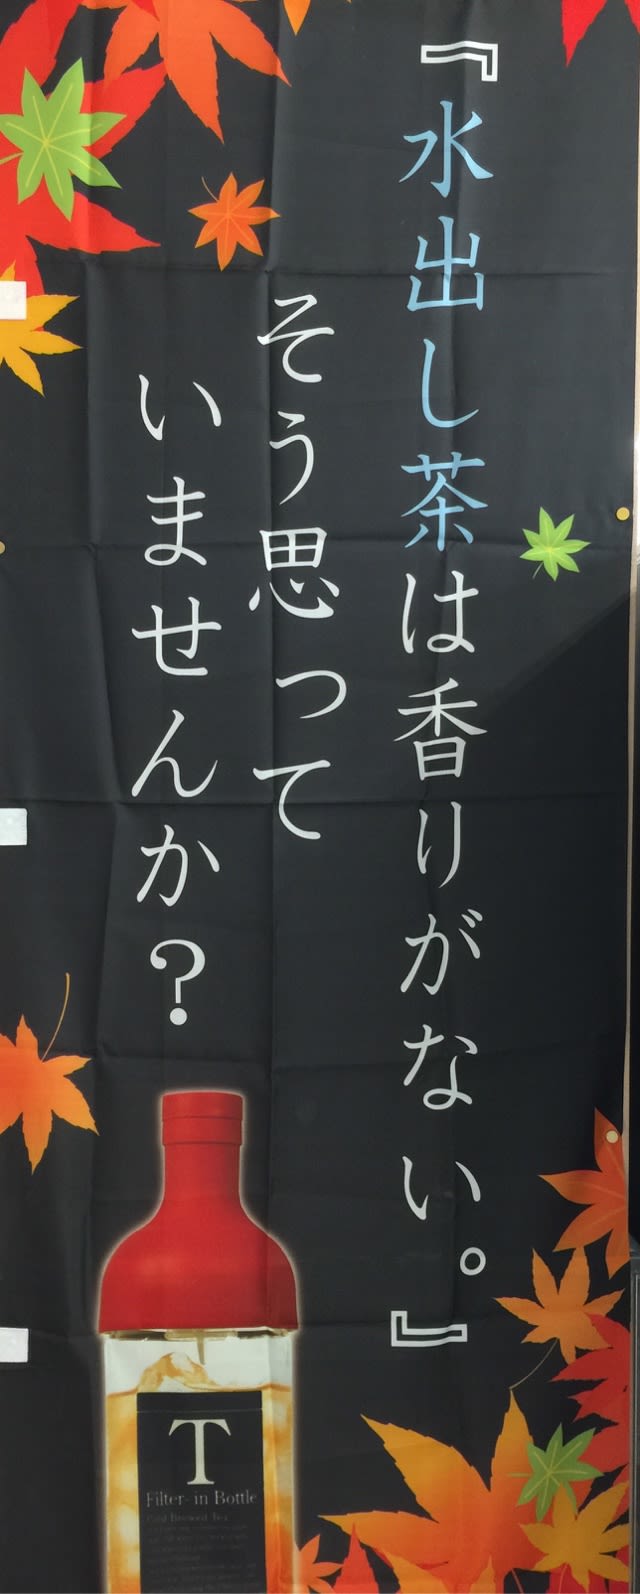 『水出し茶は香りがない。』
そう思って
いませんか?
T
Filter-in Bottle
Cold Brewed Tea